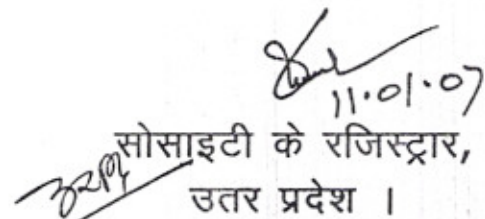 11.01.07
सोसाइटी के रजिस्ट्रार,
उतर प्रदेश ।